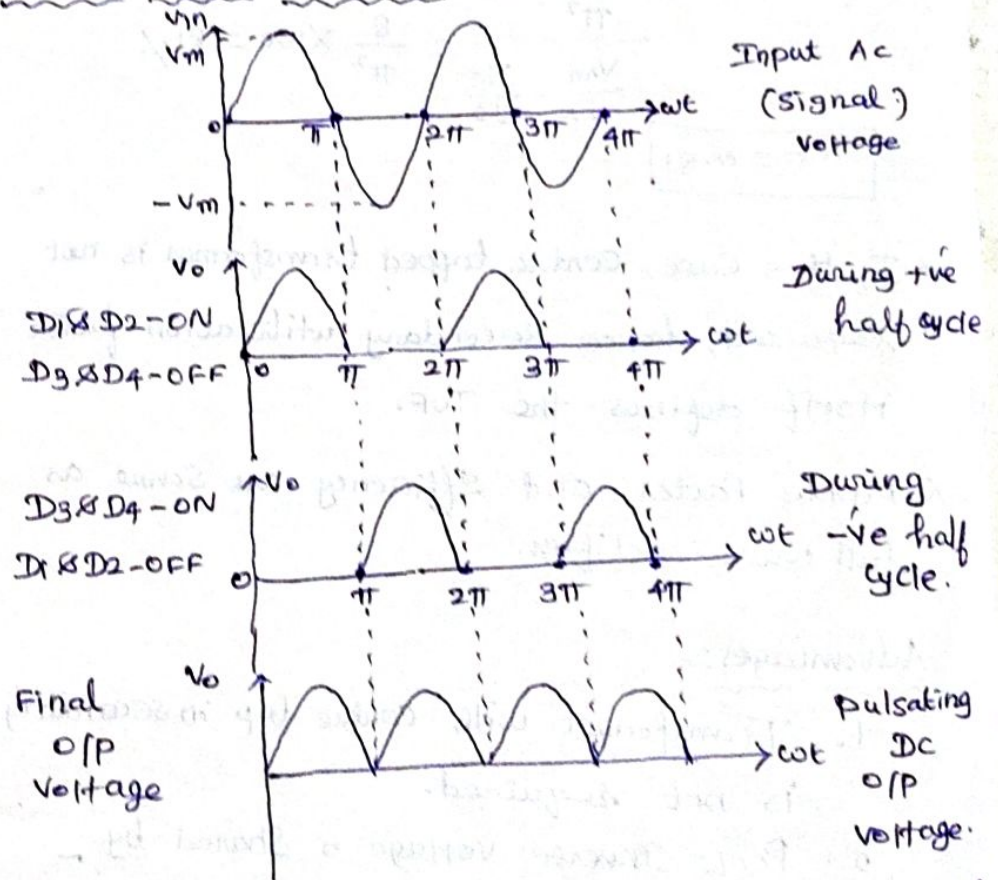 Vin
Vm
0
π
2π
3π
4π
ωt
-Vm
Input Ac
(Signal)
Voltage
Vo
D1 & D2-ON
D3 & D4-OFF
0
π
2π
3π
4π
ωt
During +ve
half cycle
Vo
D3 & D4-ON
D1 & D2-OFF
0
π
2π
3π
4π
ωt
During
-ve half
cycle.
Vo
Final
O/P
Voltage
ωt
pulsating
DC
O/P
voltage.